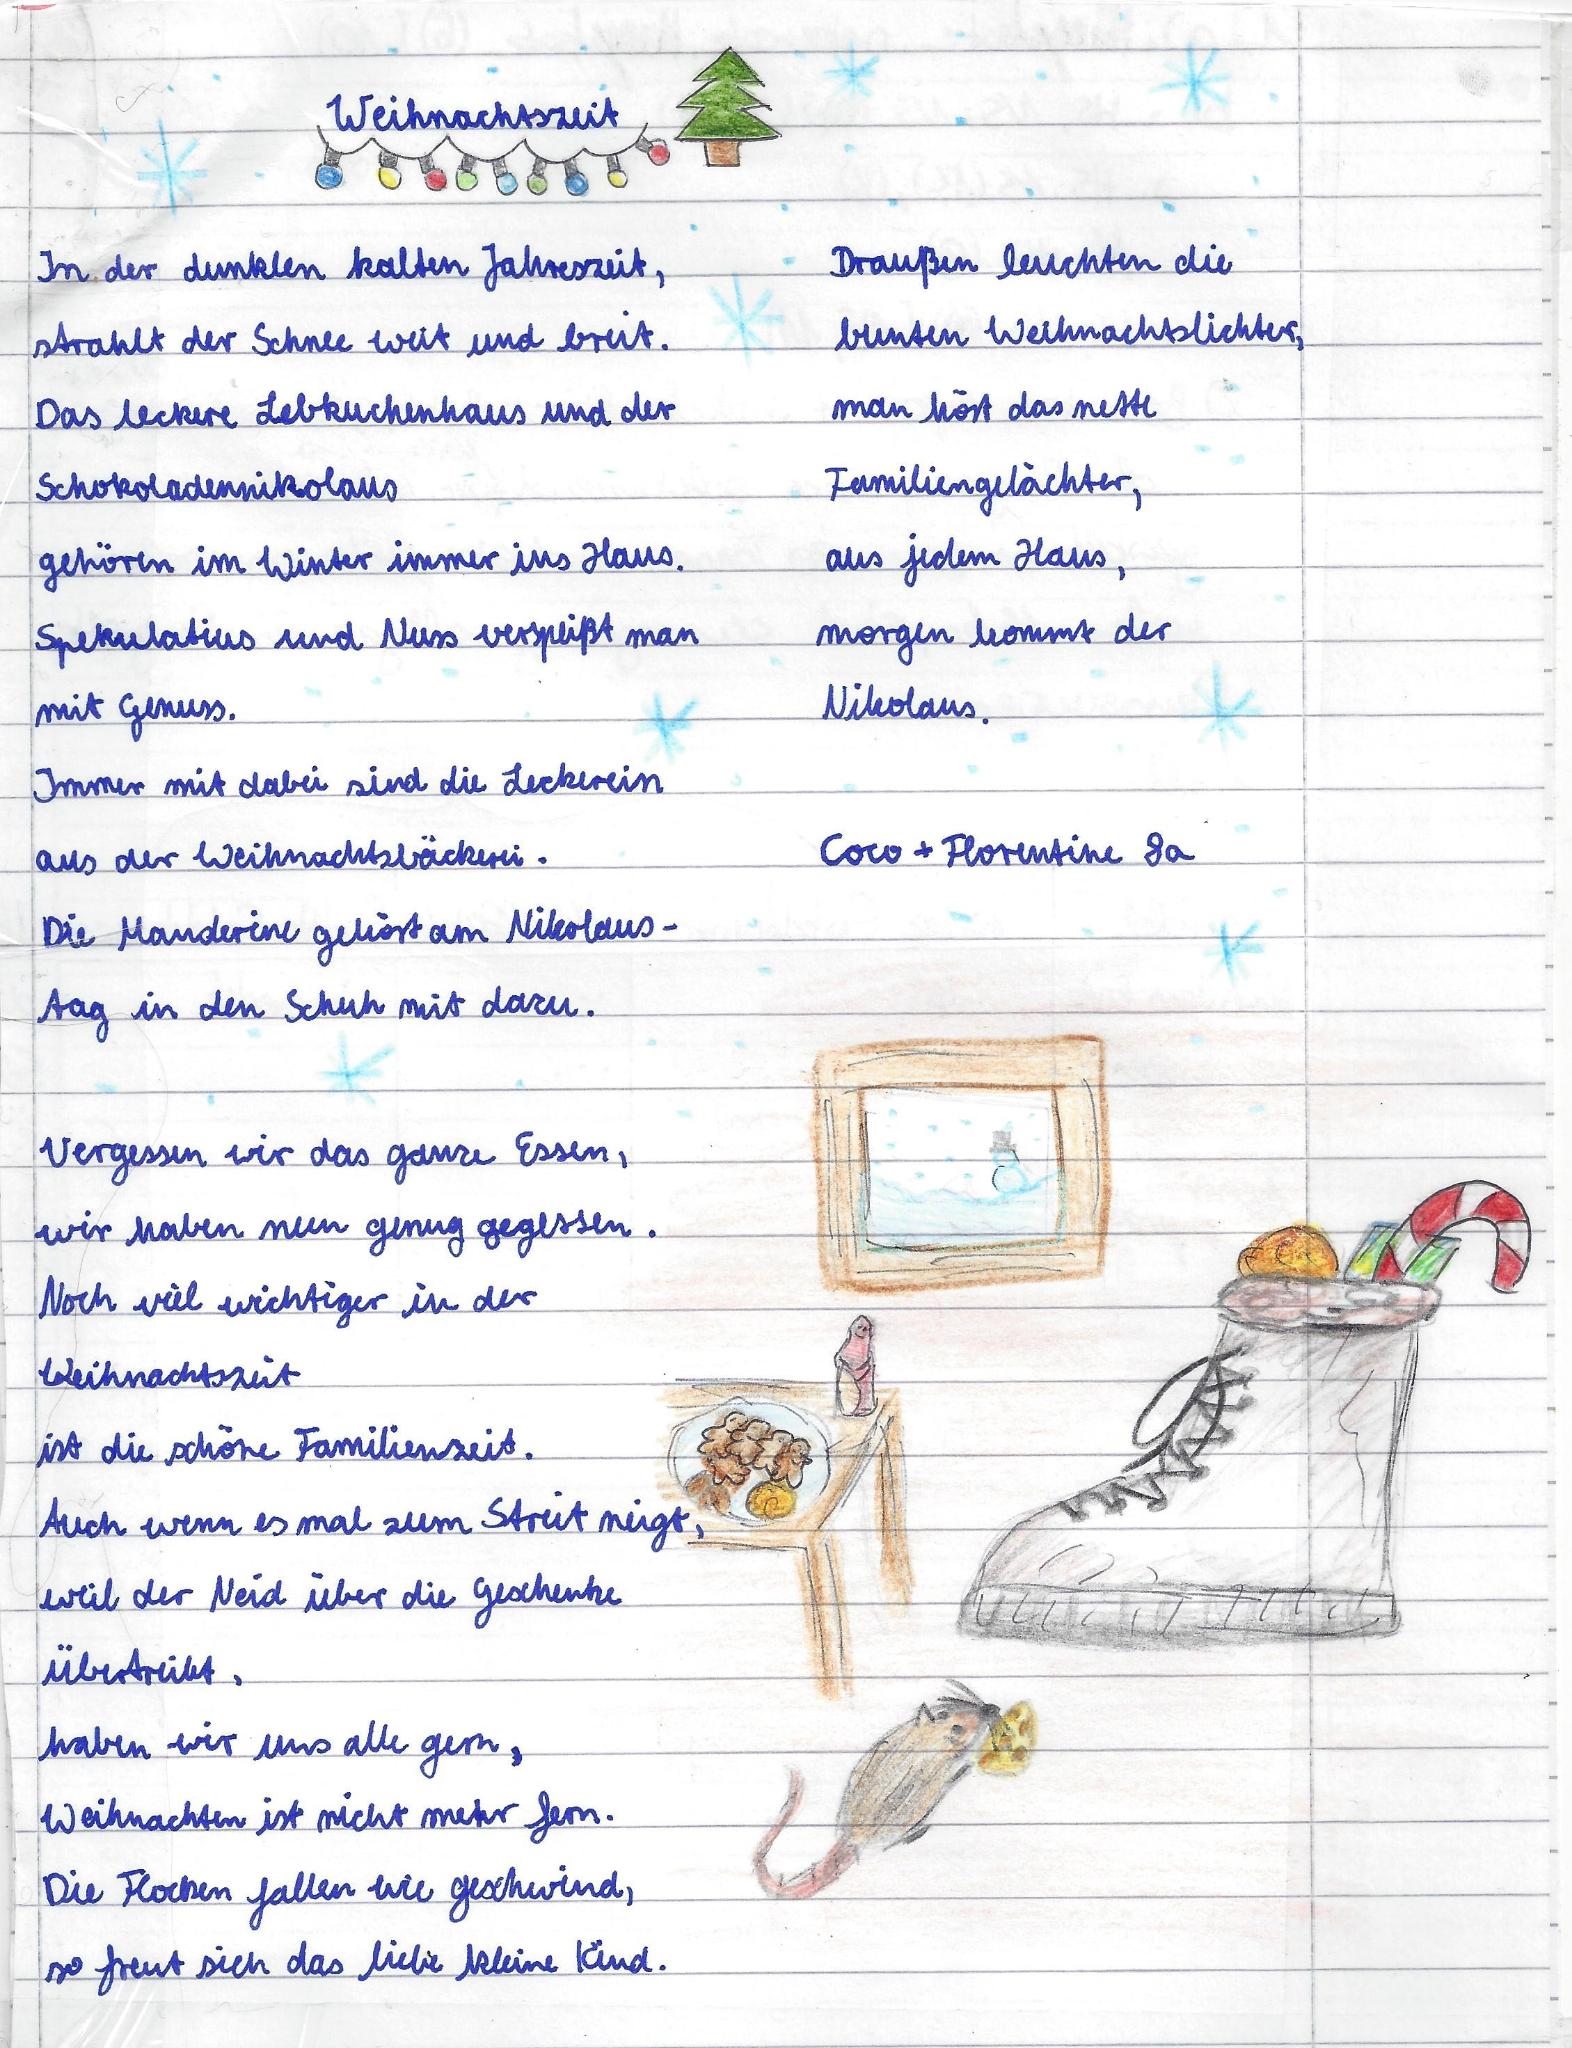 Weihnachtszeit
In der dunklen kalten Jahreszeit,
strahlt der Schnee weit und breit.
Das leckere Lebkuchenhaus und der
Schokoladennikolaus
gehören im Winter immer ins Haus.
Spekulatius und Nuss verspeißt man
mit Genuss.
Immer mit dabei sind die Leckerein
aus der Weihnachtsbäckerei.
Die Manderine gehört am Nikolaus-
tag in den Schuh mit dazu.
Vergessen wir das ganze Essen,
wir haben nun genug gegessen.
Noch viel wichtiger in der
Weihnachtszeit
ist die schöne Familienzeit.
Auch wenn es mal zum Streit neigt,
weil der Neid über die Geschenke
übertreibt,
haben wir uns alle gern,
Weihnachten ist nicht mehr fern.
Die Flocken fallen wie geschwind,
so freut sich das liebe kleine Kind.
Draußen leuchten die
bunten Weihnachtslichter,
man hört das nette
Familiengelächter,
aus jedem Haus,
morgen kommt der
Nikolaus.
Coco + Florentine 8a